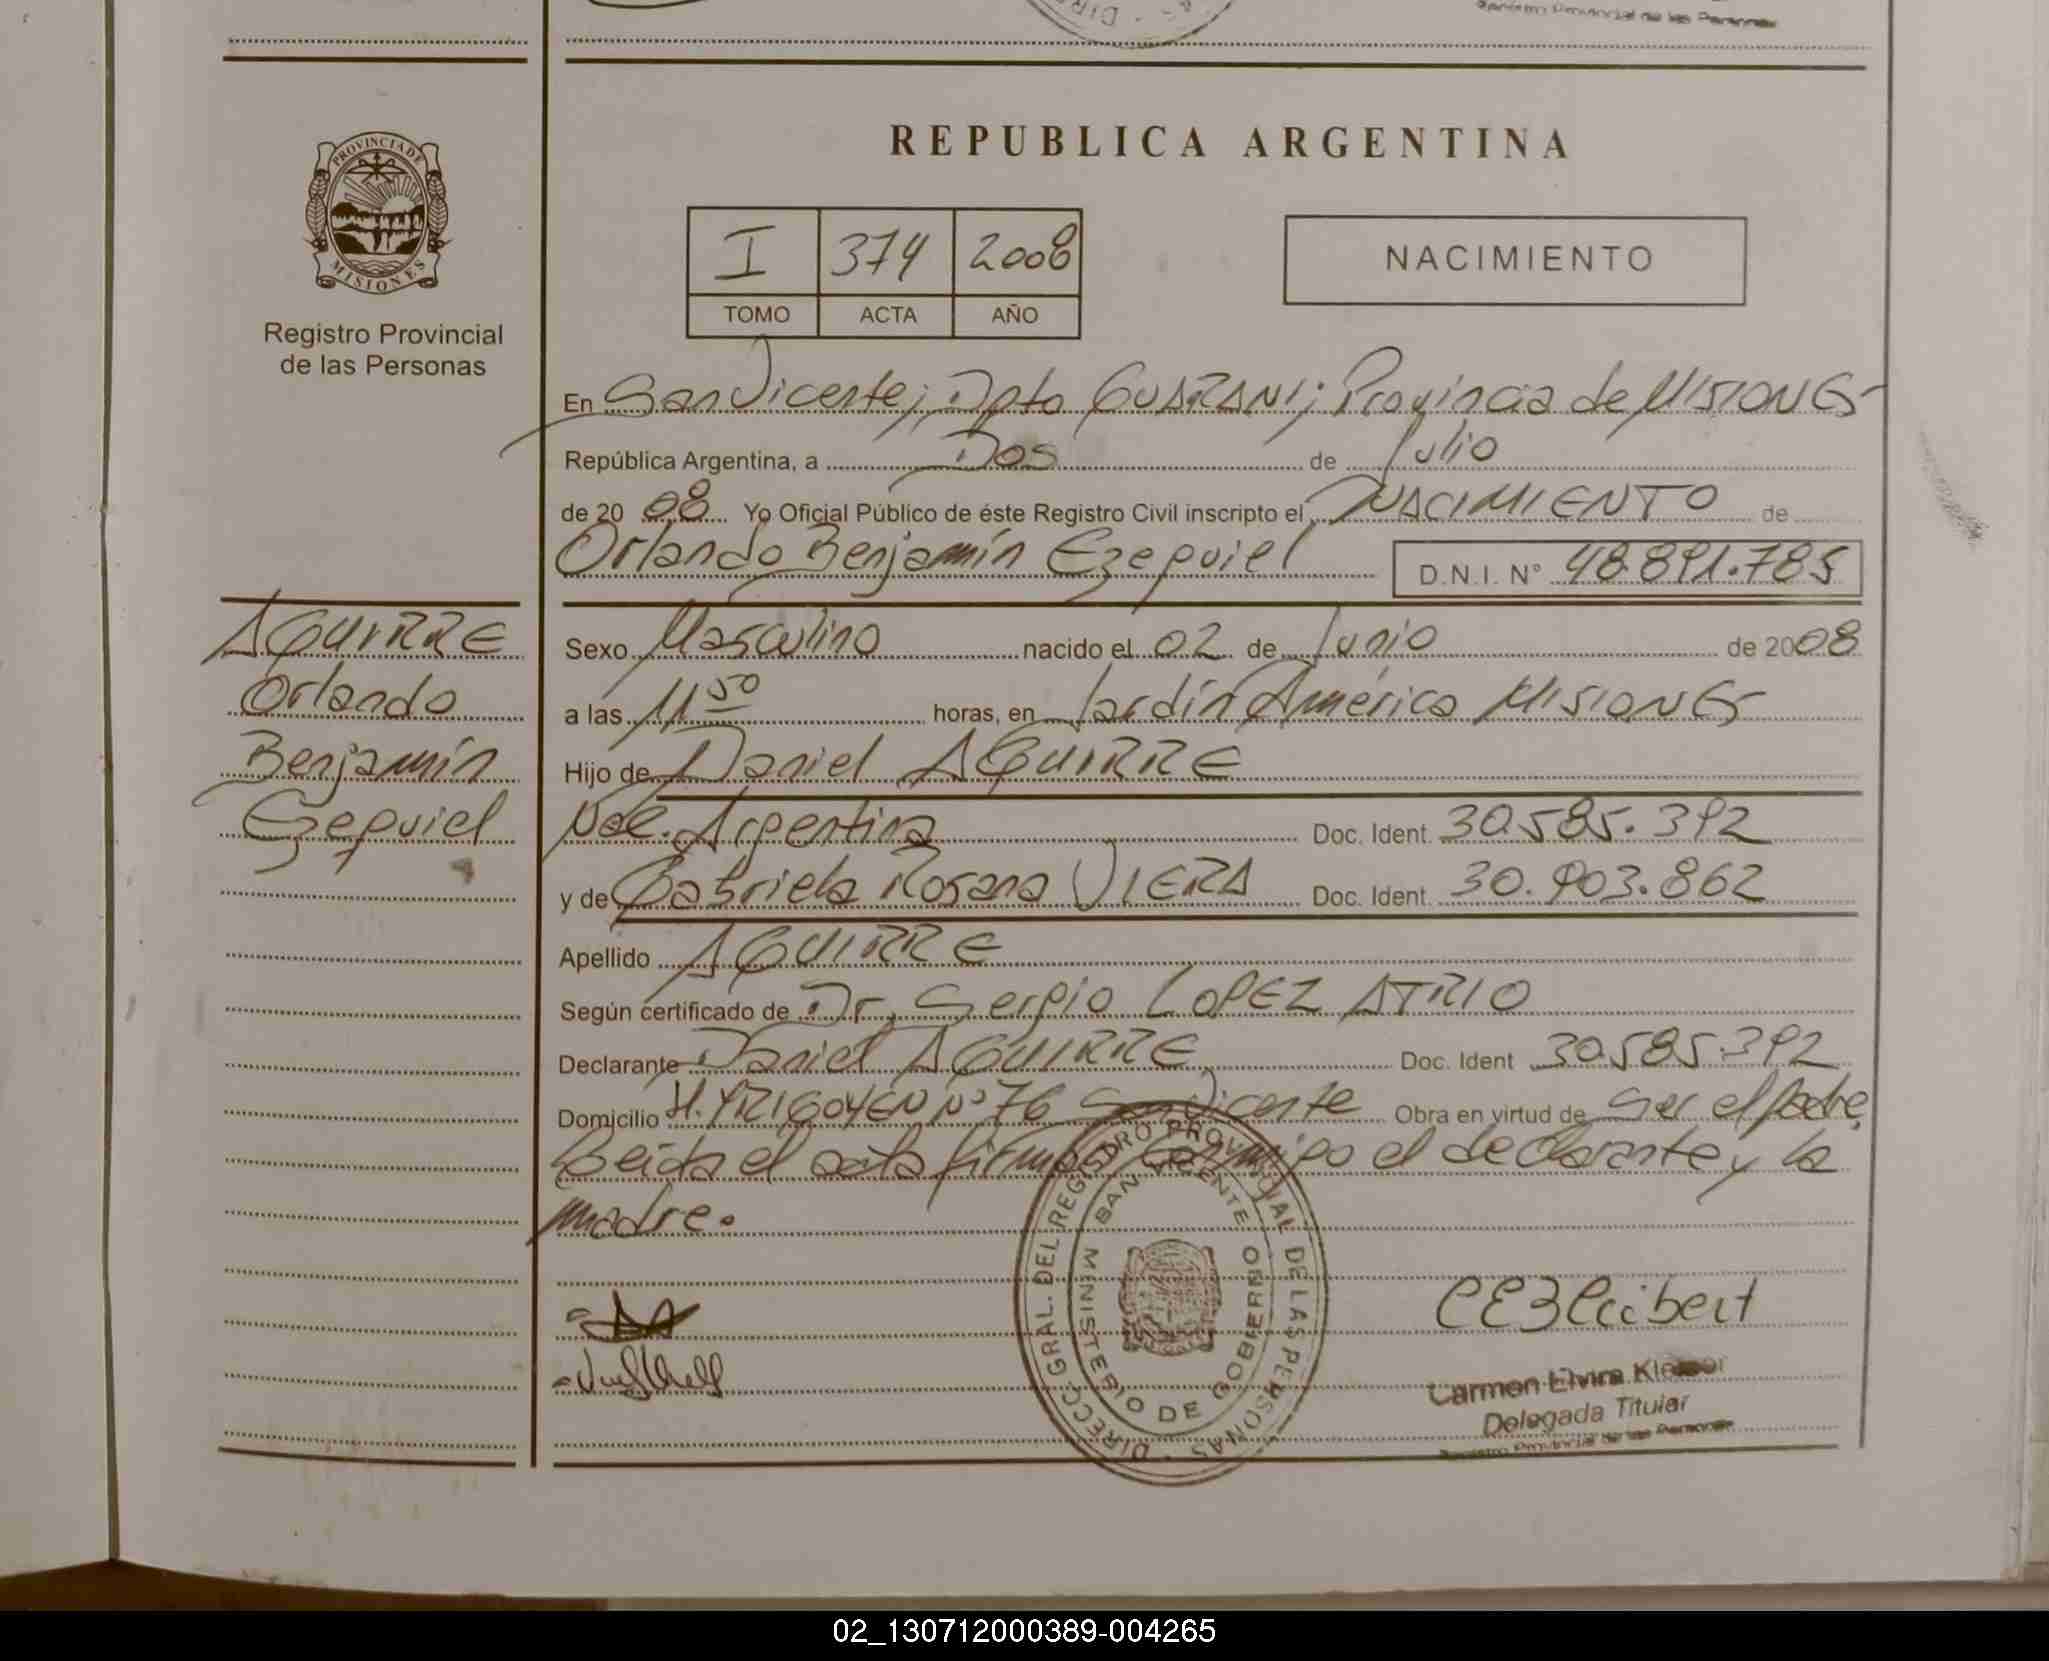 Registro Provincial de las Personas
REPUBLICA ARGENTINA
PROVINCIA DE
MISIONES
Registro Provincial
de las Personas
I 374 2008
TOMO ACTA AÑO
NACIMIENTO
En San Vicente; Dpto GUARANI; Provincia de MISIONES
República Argentina, a Dos de Julio
de 20 08 Yo Oficial Público de éste Registro Civil inscripto el NACIMIENTO de
Orlando Benjamín Ezequiel D.N.I. N° 48.891.785
AGUIRRE
Orlando
Benjamín
Ezequiel
Sexo Masculino nacido el 02 de Junio de 2008
a las 11 50 horas, en Jardín América MISIONES
Hijo de Daniel AGUIRRE
Nac. Argentina Doc. Ident. 30.585.392
y de Gabriela Rosana VIERA Doc. Ident. 30.903.862
Apellido AGUIRRE
Según certificado de Dr. Sergio LOPEZ ATRIO
Declarante Daniel AGUIRRE Doc. Ident 30.585.392
Domicilio H. YRIGOYEN N° 76 San Vicente Obra en virtud de ser el padre,
Leida el acta firman conmigo el declarante y la
madre.
DIRECC. GRAL. DEL REGISTRO PROVINCIAL DE LAS PERSONAS
SAN VICENTE
MINISTERIO DE GOBIERNO
Carmen Elvira
Delegada Titular
Registro Provincial de las Personas
02_130712000389-004265